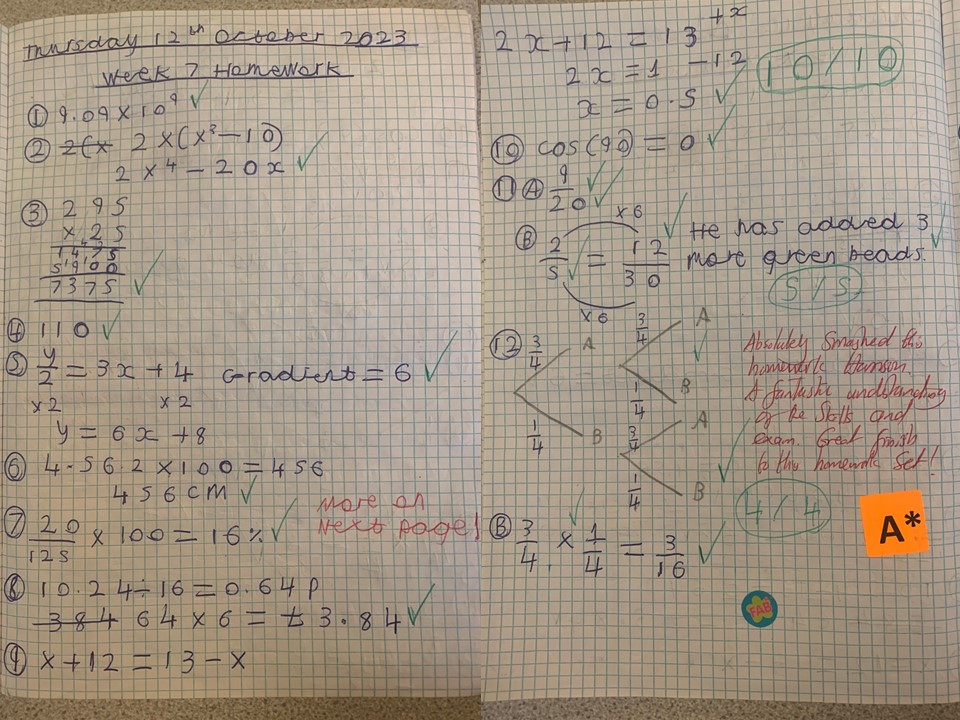 Thursday 12th October 2023
Week 7 Homework
① 9.09 × 10⁹ ✓
② 2(x 2x(x³ − 10)
2x⁴ − 20x ✓
③ 295
× 25
1475
5900
7375 ✓
④ 110 ✓
⑤ y/2 = 3x + 4 Gradient = 6 ✓
×2 ×2
y = 6x + 8
⑥ 4.56.2 × 100 = 456
456 cm ✓
⑦ 20/125 × 100 = 16% ✓
More on
Next page!
⑧ 10.24 ÷ 16 = 0.64p
384 64 × 6 = £3.84 ✓
⑨ x + 12 = 13 − x
+x
2x + 12 = 13
2x = 1 −12
x = 0.5 ✓
10/10
⑩ cos(90) = 0 ✓
⑪ Ⓐ 9/20 ✓✓
×6
Ⓑ 2/5 ✓ = 12/30 ✓ He has added 3 ✓
more green beads.
×6
5/5
⑫ 3/4 A 3/4 A ✓
1/4 B
1/4 B 3/4 A
1/4 B ✓
Absolutely smashed this
homework Harrison.
A fantastic understanding
of the skills and
exam. Great finish
to this homework set!
4/4
Ⓑ 3/4 × 1/4 ✓ = 3/16 ✓
A*
FAB